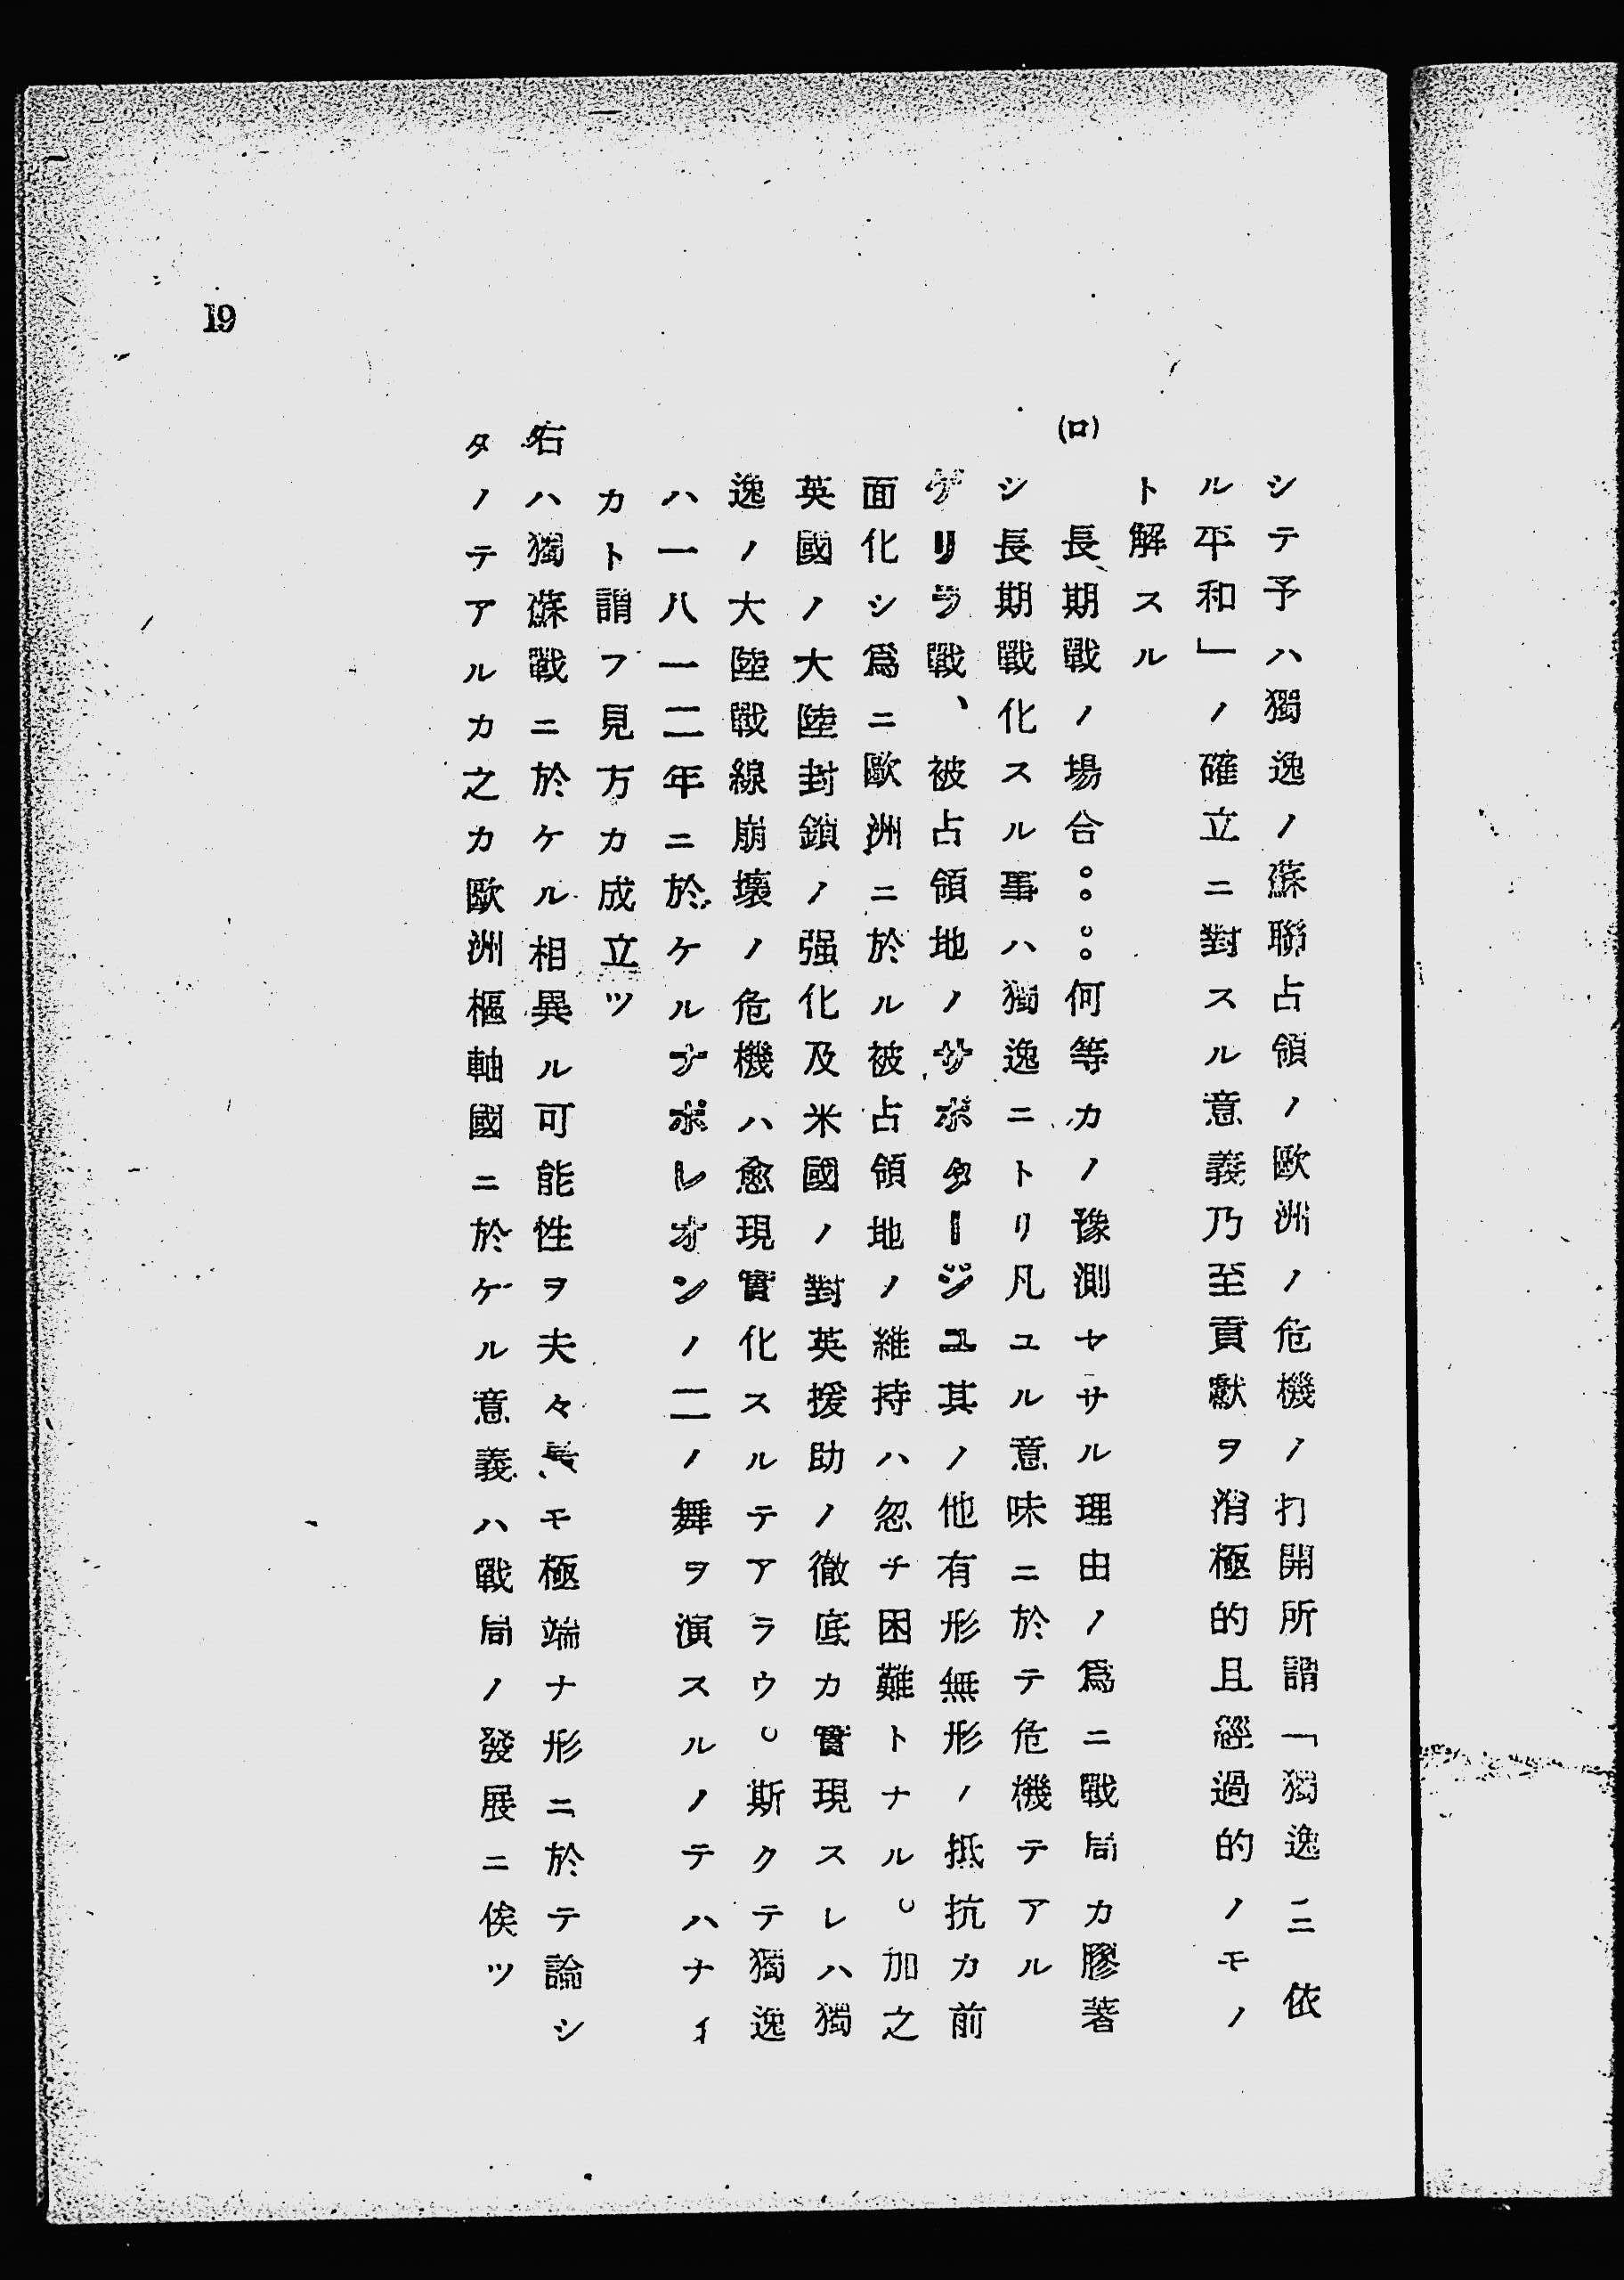 シテ予ハ獨逸ノ蘇聯占領ノ歐洲ノ危機ノ打開所謂「獨逸ニ依
ル平和」ノ確立ニ對スル意義乃至貢獻ヲ消極的且經過的ノモノ
ト解スル
(ロ) 長期戰ノ場合。。。。何等カノ豫測ヤサル理由ノ爲ニ戰局カ膠著
シ長期戰化スル事ハ獨逸ニトリ凡ユル意味ニ於テ危機テアル
ゲリラ戰、被占領地ノサボタージユ其ノ他有形無形ノ抵抗カ前
面化シ爲ニ歐洲ニ於ル被占領地ノ維持ハ忽チ困難トナル。加之
英國ノ大陸封鎖ノ强化及米國ノ對英援助ノ徹底カ實現スレハ獨
逸ノ大陸戰線崩壞ノ危機ハ愈現實化スルテアラウ。斯クテ獨逸
ハ一八一二年ニ於ケルナポレオンノ二ノ舞ヲ演スルノテハナイ
カト謂フ見方カ成立ツ
右ハ獨蘇戰ニ於ケル相異ル可能性ヲ夫々最モ極端ナ形ニ於テ論シ
タノテアルカ之カ歐洲樞軸國ニ於ケル意義ハ戰局ノ發展ニ俟ツ
19